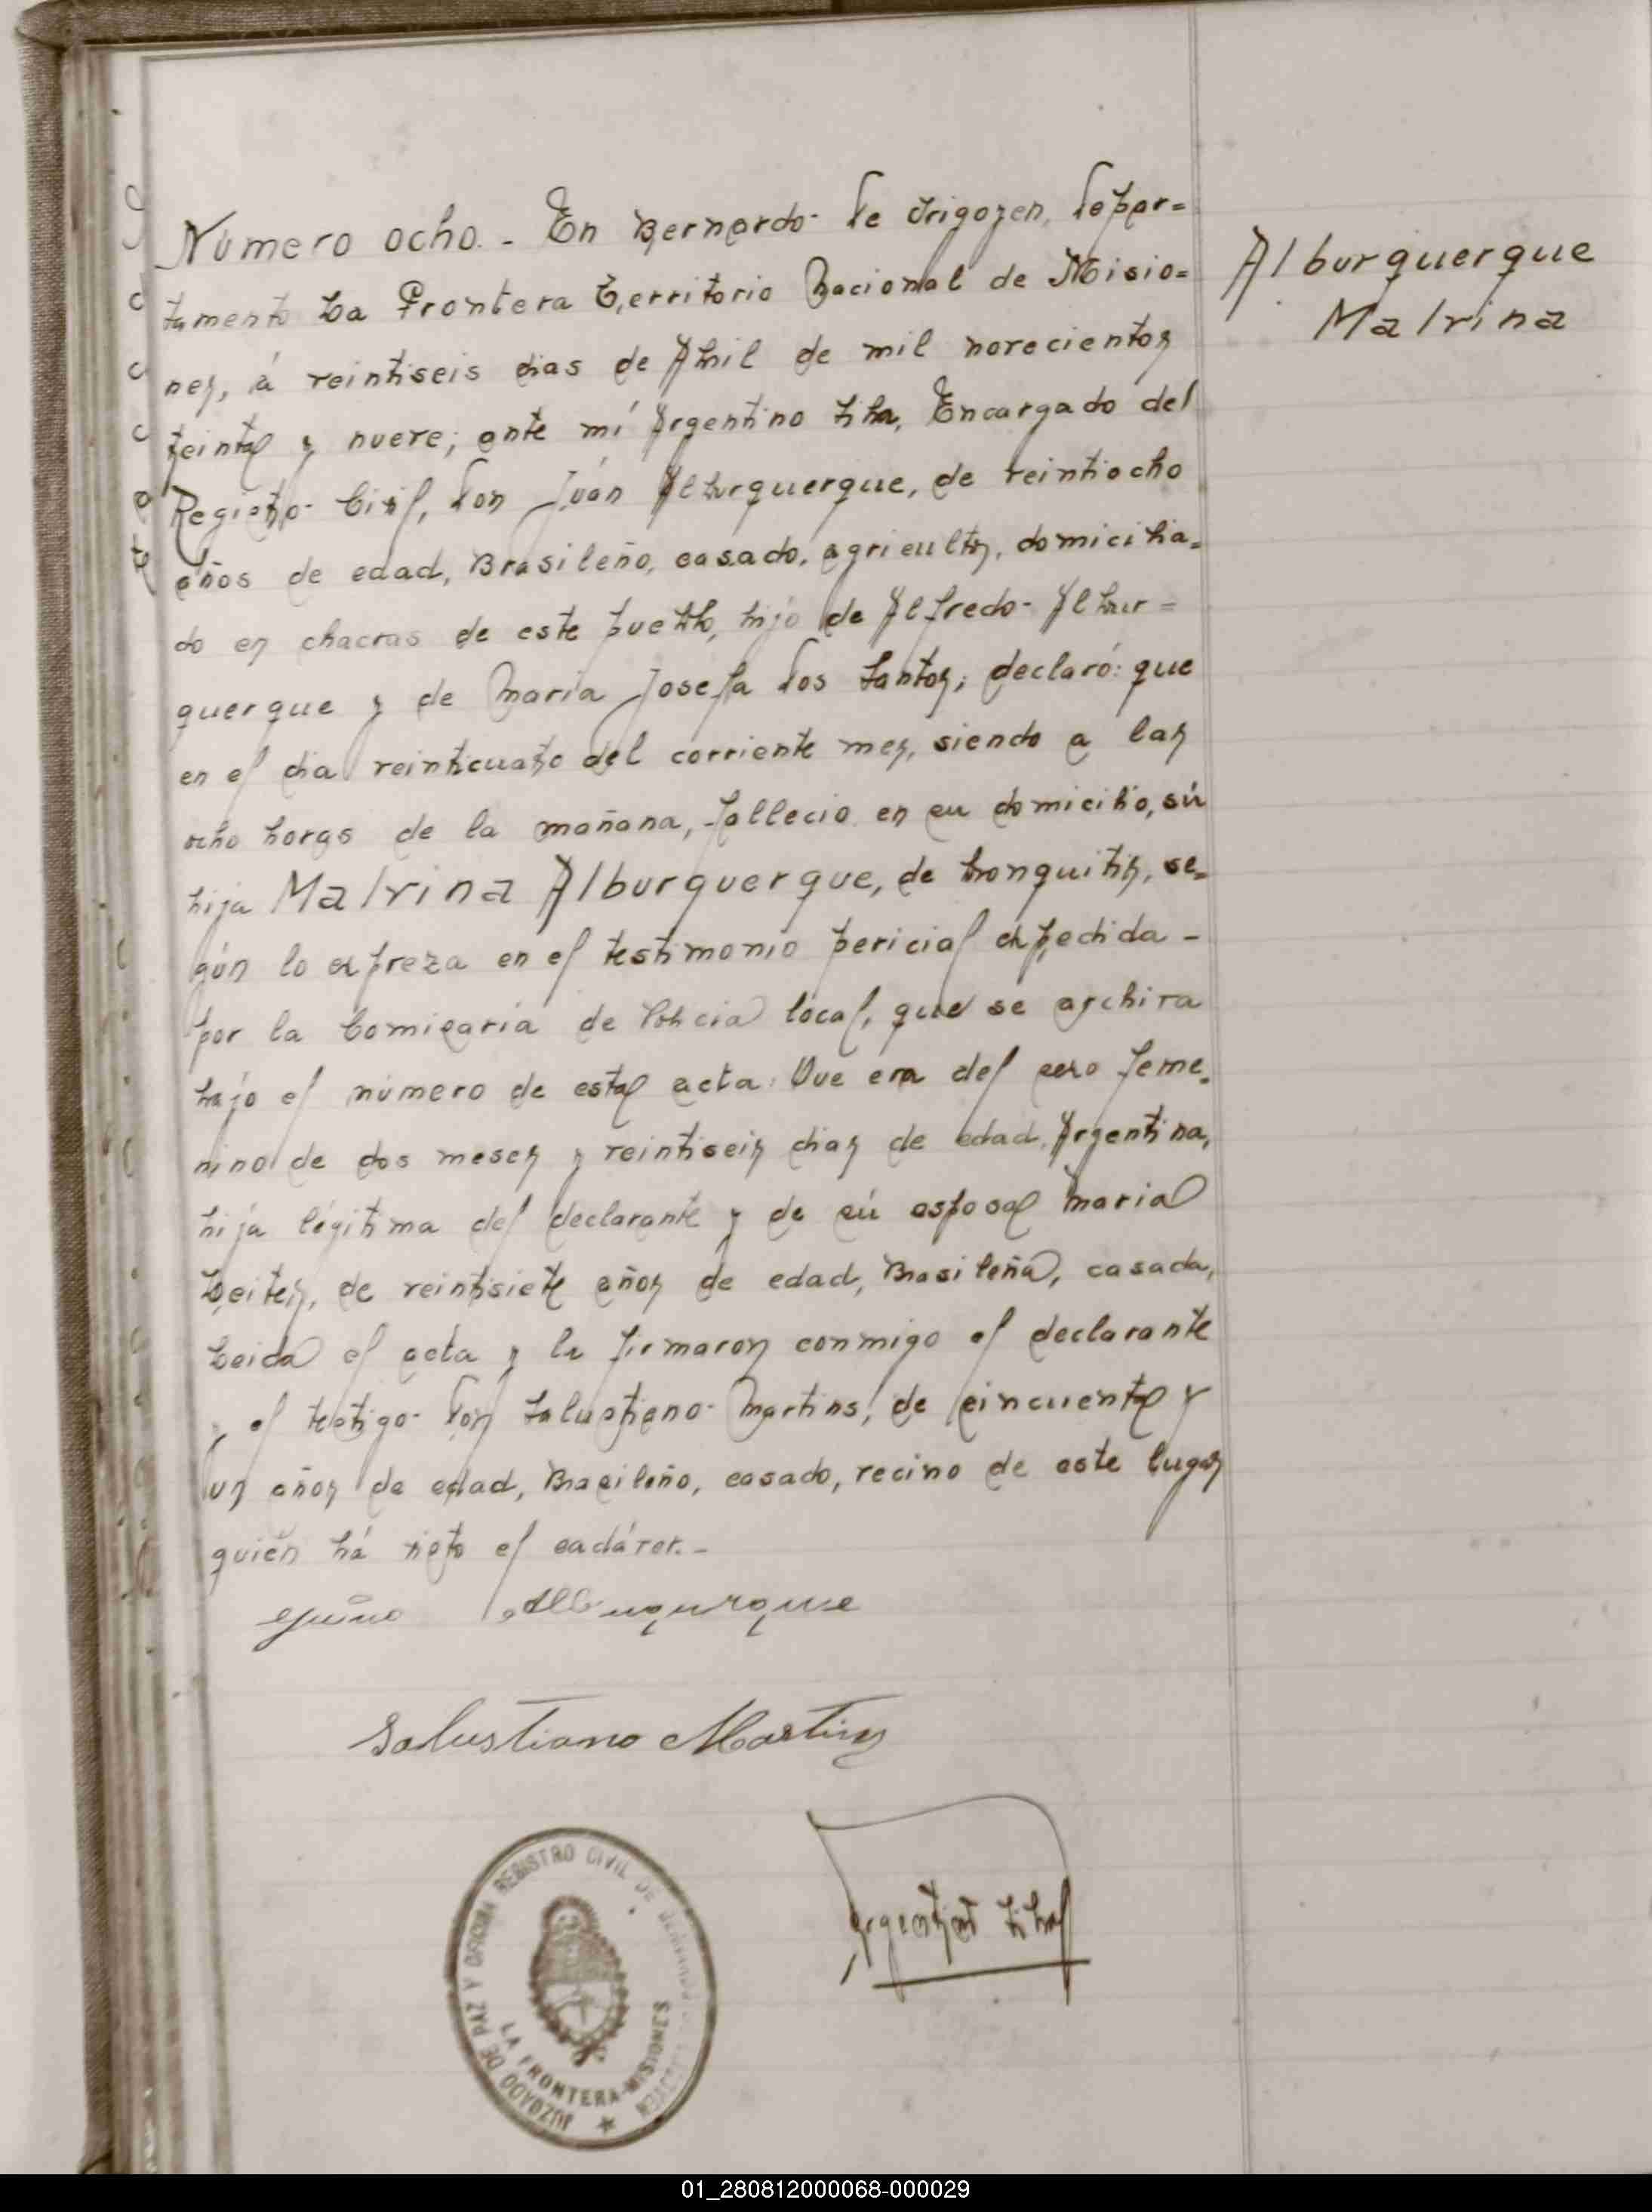 Número ocho.- En Bernardo de Irigoyen, depar=
tamento La Frontera Territorio Nacional de Misio=
nes, á veintiseis dias de Abril de mil novecientos
treinta y nueve; ante mí Argentino Silva, Encargado del
Registro Civil, don Juán Alburquerque, de veintiocho
años de edad, Brasileño, casado, agricultor, domicilia=
do en chacras de este pueblo, hijo de Alfredo Albur=
querque y de Maria Josefa dos Santos; declaró: que
en el dia veinticuatro del corriente mes, siendo a las
ocho horas de la mañana, falleció en su domicilio, sú
hija Malvina Alburquerque, de bronquitis, se=
gún lo expreza en el testimonio pericial expedida -
por la Comisaria de Policia local, que se archiva
bajo el número de esta acta. Que era del sexo feme=
nino de dos meses y veintiseis dias de edad, Argentina,
hija légitima del declarante y de sú esposa Maria
Leites, de veintisiete años de edad, Brasileña, casada,
Leida el acta y la firmaron conmigo el declarante
y el testigo don Salustiano Martins, de cincuenta y
un años de edad, Brasileño, casado, vecino de este lugar
quién há visto el cadáver.-
Alburquerque
Malvina
Albuquurque
Salustiano Martins
Argentino Silva
JUZGADO DE PAZ Y OFICINA REGISTRO CIVIL DE BERNARDO DE IRIGOYEN
LA FRONTERA-MISIONES
01_280812000068-000029